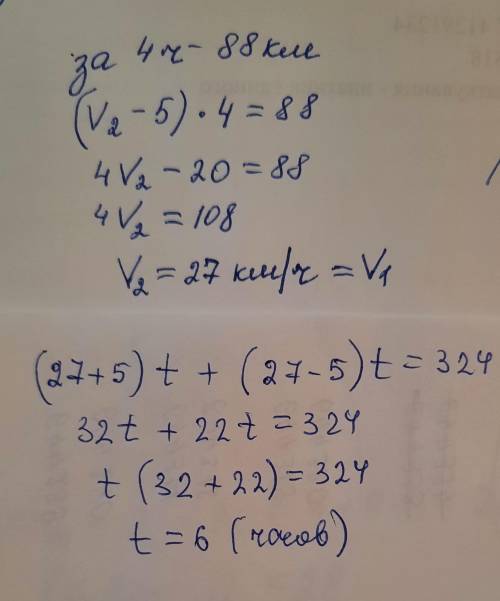 за 4ч - 88 км
(V₂ - 5) • 4 = 88
4V₂ - 20 = 88
4V₂ = 108
V₂ = 27 км/ч = V₁
(27+5) t + (27-5) t = 324
32t + 22t = 324
t (32 + 22) = 324
t = 6 (часов)